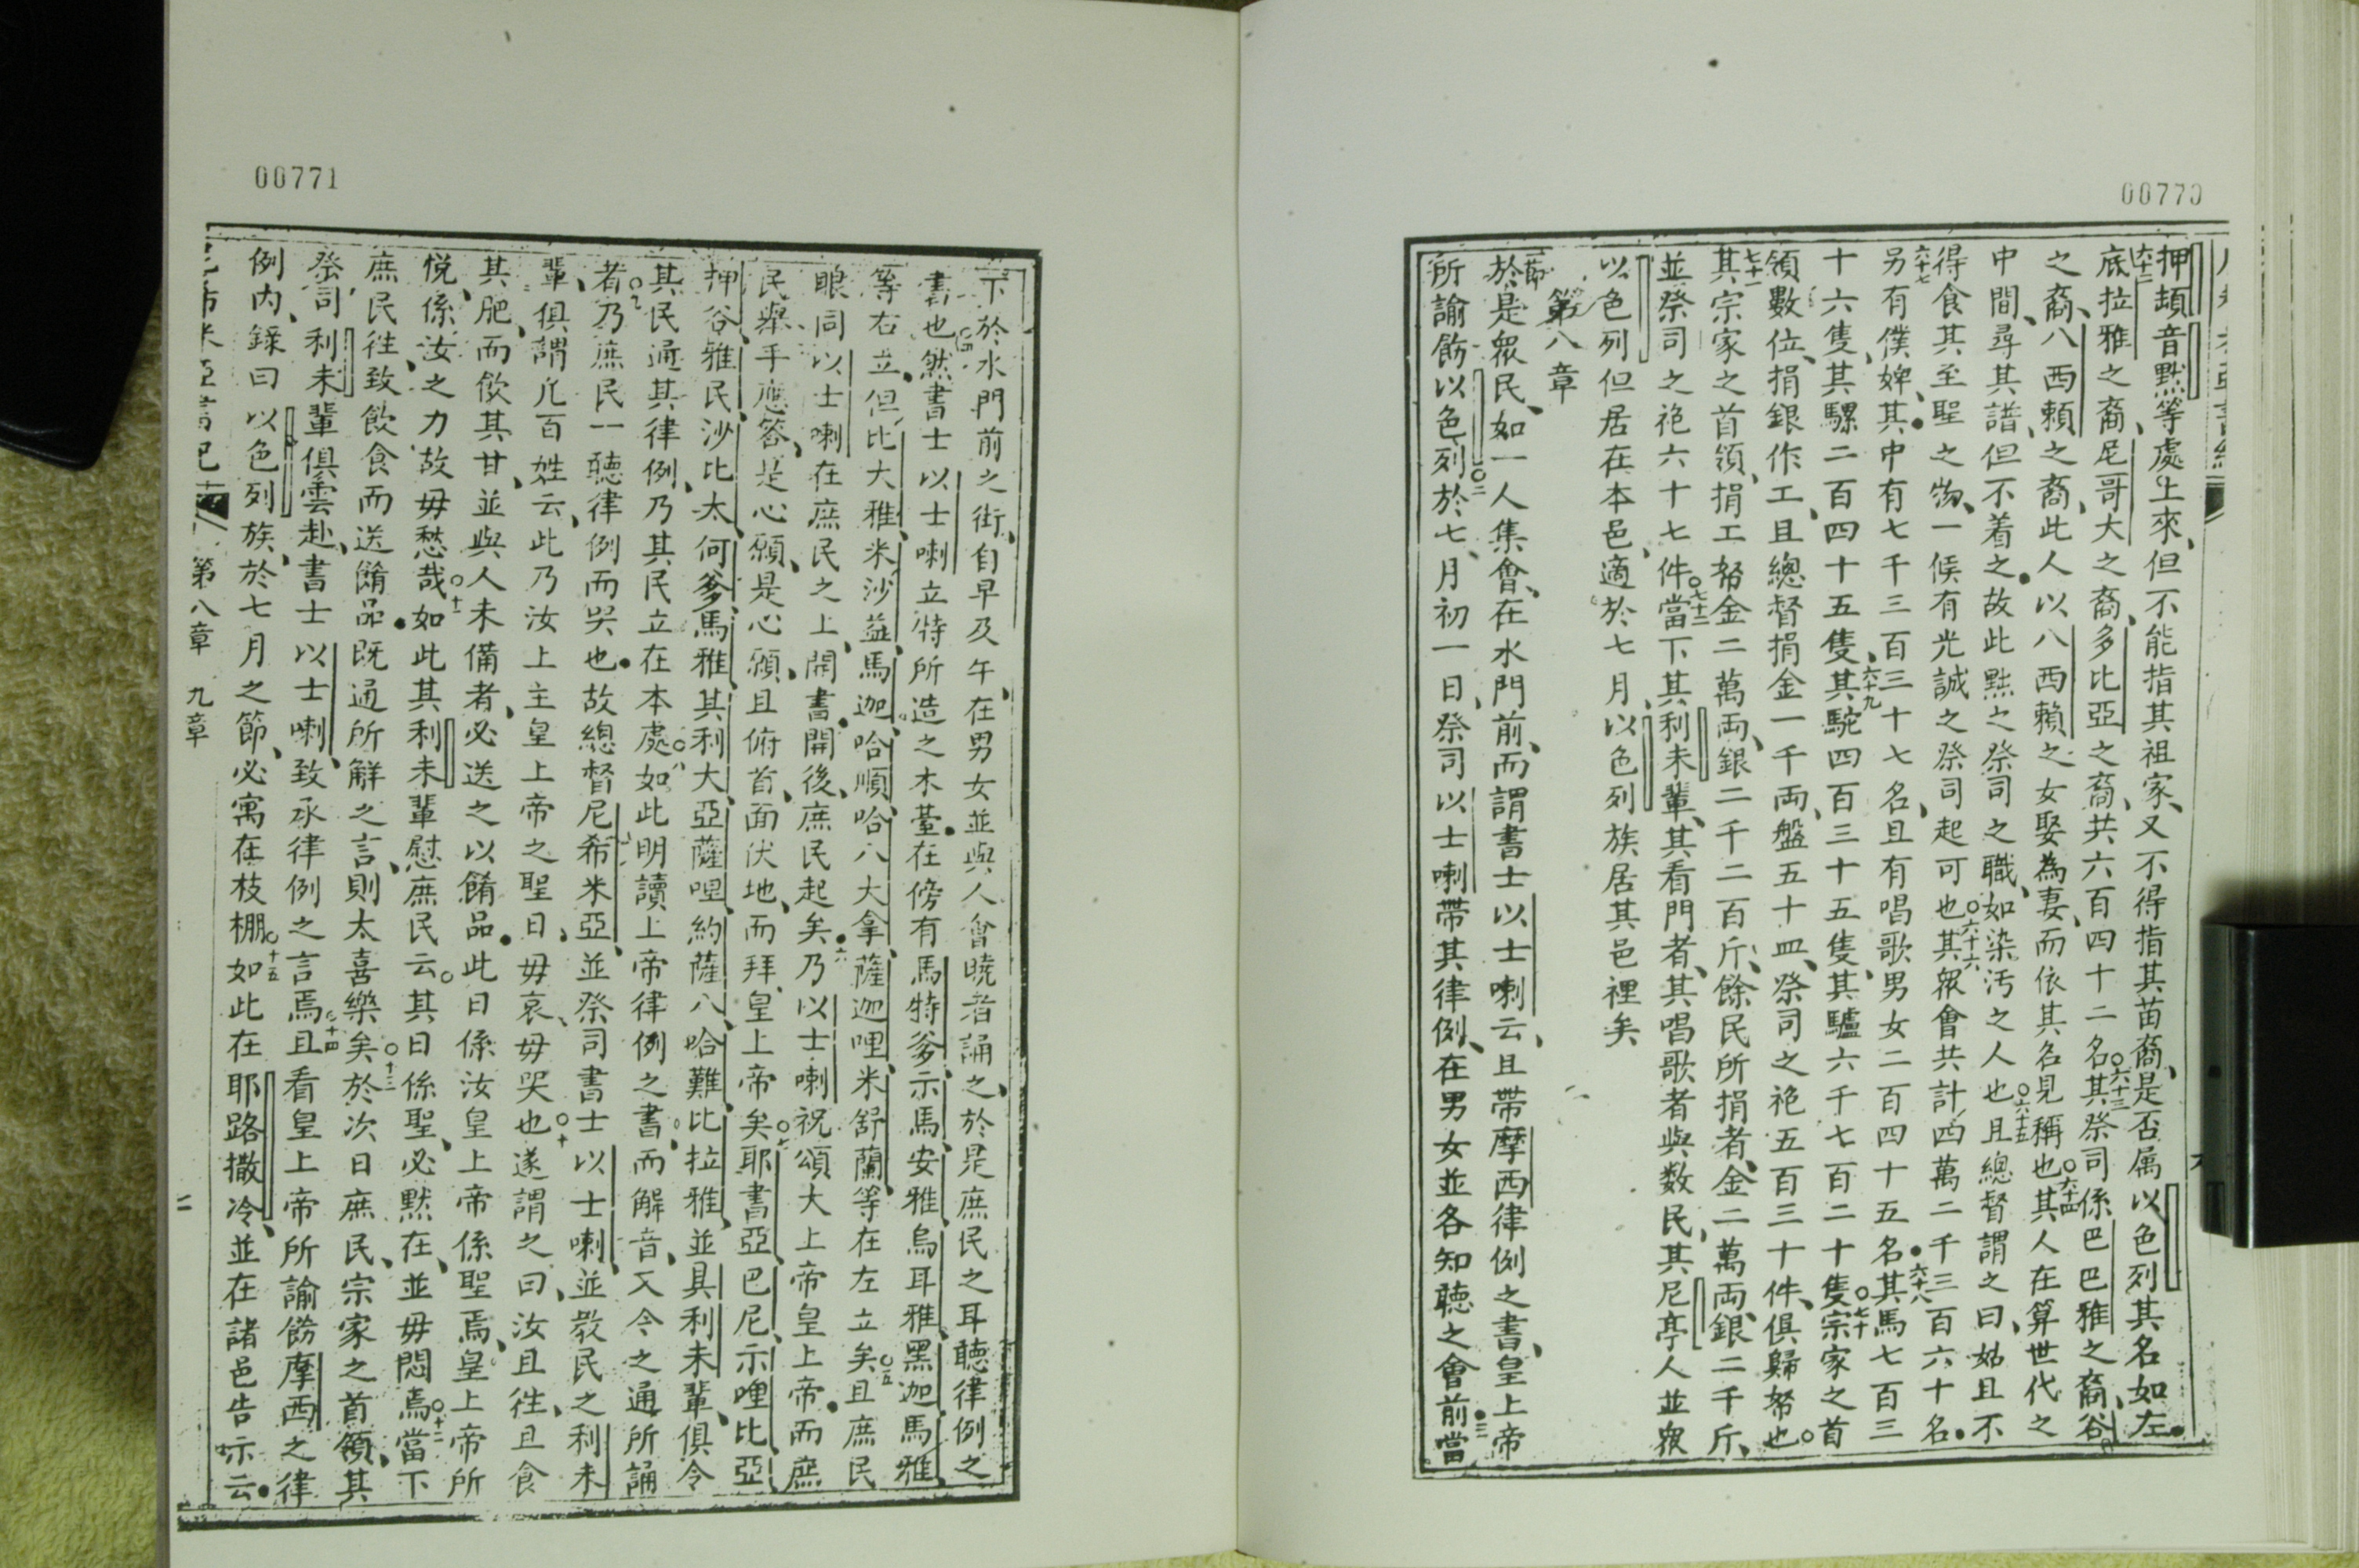 00770
押頡音黙等處上來但不能指其祖家又不得指其苗裔是否属以色列其名如左
六十二底拉雅之裔尼哥大之裔多比亞之裔共六百四十二名六十三其祭司係巴巴雅之裔谷
之裔八西賴之裔此人以八西賴之女娶為妻而依其名見稱也六十四其人在算世代之
中間尋其譜但不着之故此㸃之祭司之職如染污之人也六十五且總督謂之曰姑且不
得食其至聖之物一候有光誠之祭司起可也六十六其眾會共計四萬二千三百六十名
六十七另有僕婢其中有七千三百三十七名且有唱歌男女二百四十五名六十八其馬七百三
十六隻其騾二百四十五隻六十九其駝四百三十五隻其驢六千七百二十隻七十宗家之首
領數位捐銀作工且總督捐金一千両盤五十皿祭司之袍五百三十件俱歸帑也
七十一其宗家之首領捐工帑金二萬両銀二千二百斤餘民所捐者金二萬両銀二千斤
並祭司之袍六十七件七十二當下其利未輩其看門者其唱歌者與数民其尼亭人並眾
以色列但居在本邑適於七月以色列族居其邑裡矣
第八章
一節於是眾民如一人集會在水門前而謂書士以士喇云且帶摩西律例之書皇上帝
所諭飭以色列二於七月初一日祭司以士喇帶其律例在男女並各知聽之會前三當
00771
下於水門前之街自早及午在男女並與人會曉者誦之於是庶民之耳聽律例之
書也四然書士以士喇立特所造之木臺在傍有馬特爹示馬安雅烏耳雅黑迦馬雅
等右立但比大雅米沙益馬迦哈順哈八大拿薩迦哩米舒蘭等在左立矣五且庶民
眼同以士喇在庶民之上開書開後庶民起矣六乃以士喇祝頌大上帝皇上帝而庶
民舉手應答是心願是心願且俯首面伏地而拜皇上帝矣七耶書亞巴尼示哩比亞
押谷雅民沙比太何爹馬雅其利大亞薩哩約薩八哈難比拉雅並具利未輩俱令
其民通其律例乃其民立在本處八如此明讀上帝律例之書而解音又令之通所誦
者九乃庶民一聽律例而哭也故總督尼希米亞並祭司書士以士喇並教民之利未
輩俱謂凡百姓云此乃汝上主皇上帝之聖日毋哀毋哭也十遂謂之曰汝且徃且食
其肥而飲其甘並與人未備者必送之以餚品此日係汝皇上帝係聖焉皇上帝所
悅係汝之力故毋愁哉十一如此其利未輩慰庶民云其日係聖必默在並毋悶焉十二當下
庶民徃致飲食而送餚品既通所解之言則太喜樂矣十三於次日庶民宗家之首領其
祭司利未輩俱雲赴書士以士喇致承律例之言焉十四且看皇上帝所諭飭摩西之律
例內錄曰以色列族於七月之節必寓在枝棚十五如此在耶路撒冷並在諸邑告示云
第八章 九章